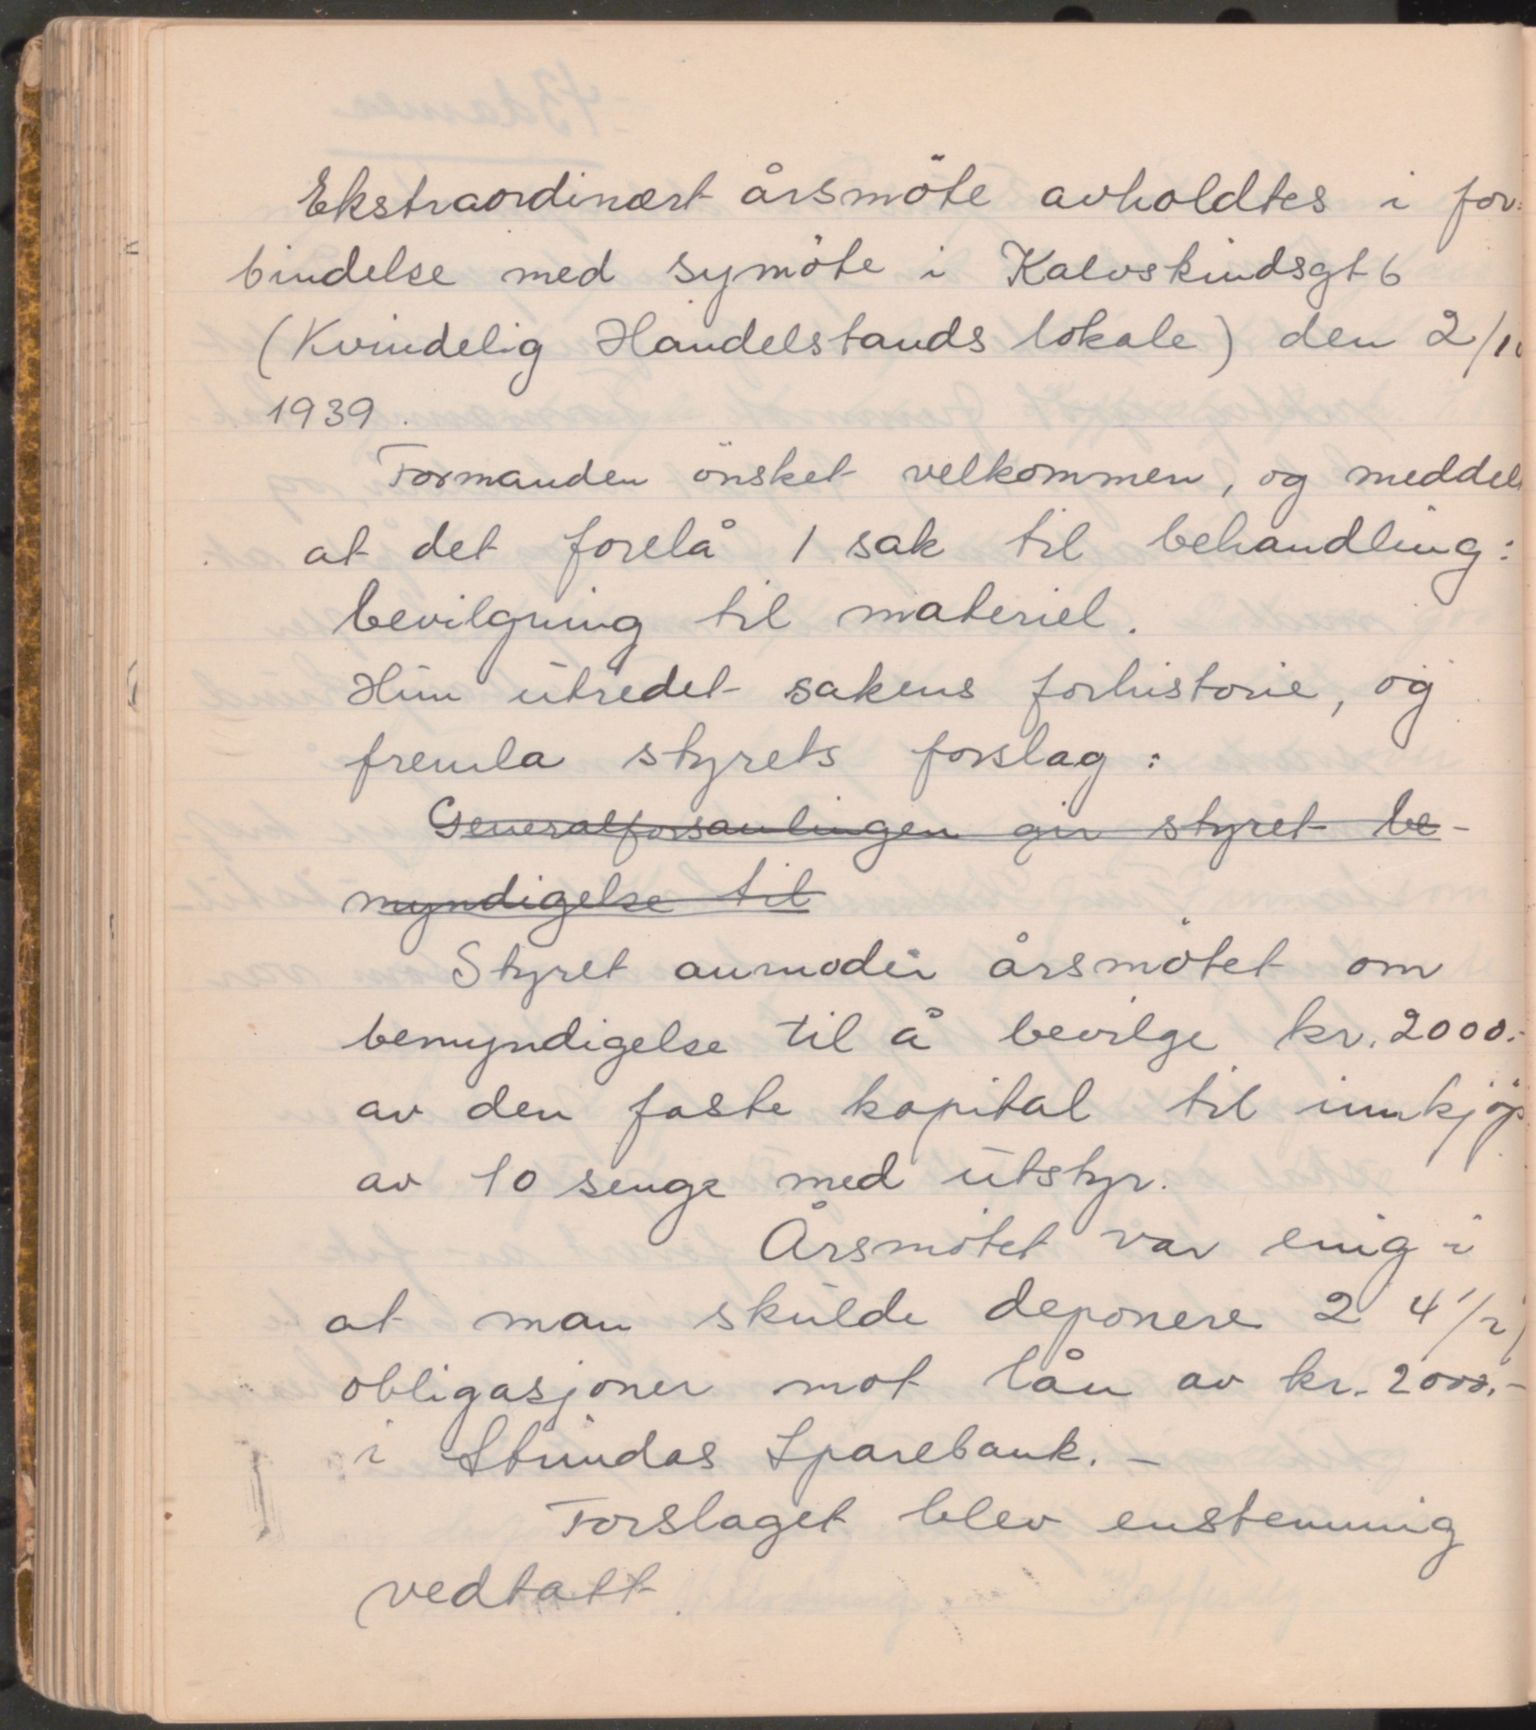 Ekstraordinært årsmöte avholdtes i for-
bindelse med symöte i Kalvskindsgt 6
(Kvindelig Handelstands lokale) den 2/10
1939.
Formanden önsket velkommen, og meddel
at det forelå 1 sak til behandling:
bevilgning til materiel.
Hun utredet sakens forhistorie, og
fremla styrets forslag:
Generalforsamlingen gir styret be-
myndigelse til
Styret anmoder årsmötet om
bemyndigelse til å bevilge kr. 2000.-
av den faste kapital til innkjöp
av 10 senge med utstyr.
Årsmötet var enig i
at man skulde deponere 2 4 1/2
obligasjoner mot lån av kr. 2000.-
i Strindas Sparebank. -
Forslaget blev enstemmig
vedtatt.